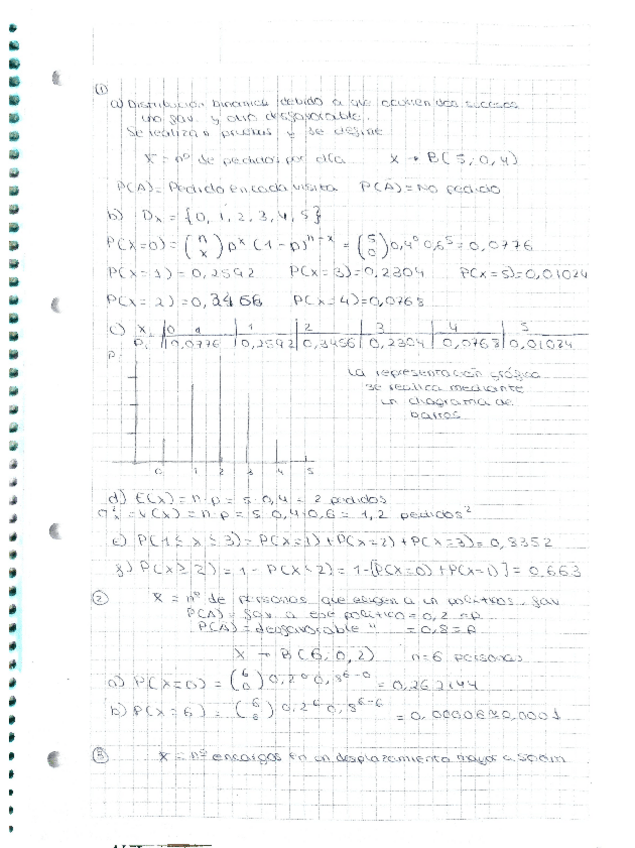 ①
a) Distribución binomial debido a que ocurren dos sucesos
uno fav. y otro desfavorable.
Se realizan pruebas y se define
X = nº de pedidos por día   X → B(5, 0,4)
P(A) = Pedido en cada visita   P(A) = No pedido
b) Dx = {0, 1, 2, 3, 4, 5}
P(X=0) = (n x) p^x (1-p)^n-x = (5 0) 0,4^0 0,6^5 = 0,0776
P(X=1) = 0,2592   P(X=3) = 0,2304   P(X=5) = 0,01024
P(X=2) = 0,3456   P(X=4) = 0,0768
c) X 0 1 2 3 4 5
P 0,0776 0,2592 0,3456 0,2304 0,0768 0,01024
P
La representación gráfica
se realiza mediante
un diagrama de
barras
0 1 2 3 4 5
d) E(X) = n·p = 5·0,4 = 2 pedidos
= V(X) = n·p = 5·0,4·0,6 = 1,2 pedidos²
e) P(1≤X≤3) = P(X=1) + P(X=2) + P(X=3) = 0,8352
f) P(X≥2) = 1 - P(X<2) = 1 - [P(X=0) + P(X=1)] = 0,663
② X = nº de personas que a un político fav
P(A) = fav a ese político = 0,2 = p
P(A) = desfavorable " = 0,8 =
X → B(6, 0,2)   n=6 personas
a) P(X=0) = (6 0) 0,2^0 0,8^6-0 = 0,262144
b) P(X=6) = (6 6) 0,2^6 0,8^6-6 = 0,00006 ≈ 0,0001
③ X = nº encargos en un desplazamiento mayor a